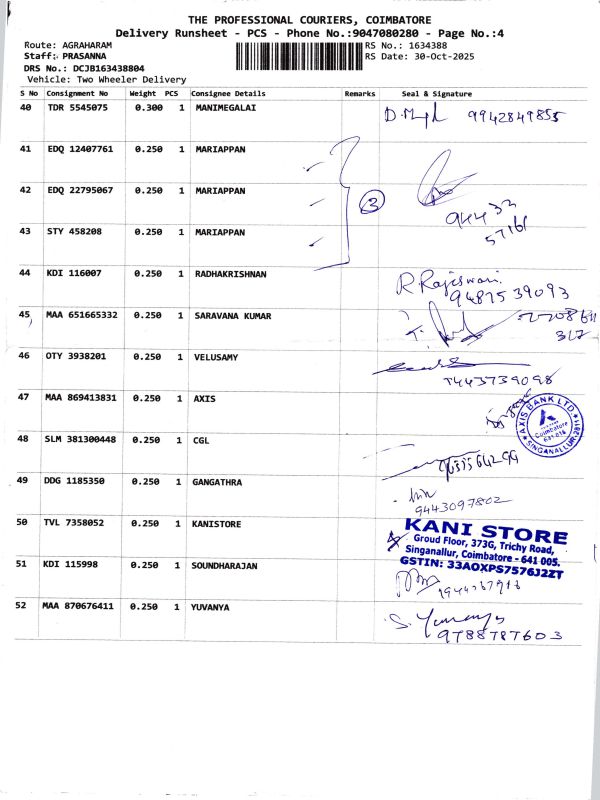 THE PROFESSIONAL COURIERS, COIMBATORE
Delivery Runsheet - PCS - Phone No.:9047080280 - Page No.:4
Route: AGRAHARAM RS No.: 1634388
Staff: PRASANNA RS Date: 30-Oct-2025
DRS No.: DCJB163438804
Vehicle: Two Wheeler Delivery
S No Consignment No Weight PCS Consignee Details Remarks Seal & Signature
40 TDR 5545075 0.300 1 MANIMEGALAI 9942849855
41 EDQ 12407761 0.250 1 MARIAPPAN
42 EDQ 22795067 0.250 1 MARIAPPAN 3
94433
57161
43 STY 458208 0.250 1 MARIAPPAN
44 KDI 116007 0.250 1 RADHAKRISHNAN R. Rajeswari
9487539093
45 MAA 651665332 0.250 1 SARAVANA KUMAR
317
46 OTY 3938201 0.250 1 VELUSAMY
9443739098
47 MAA 869413831 0.250 1 AXIS
AXIS BANK LTD.
Coimbatore
SINGANALLUR
48 SLM 381300448 0.250 1 CGL
49 DDG 1185350 0.250 1 GANGATHRA
9443097802
50 TVL 7358052 0.250 1 KANISTORE
KANI STORE
Groud Floor, 373G, Trichy Road,
Singanallur, Coimbatore - 641 005.
GSTIN: 33AOXPS7576J2ZT
51 KDI 115998 0.250 1 SOUNDHARAJAN
52 MAA 870676411 0.250 1 YUVANYA
9788787603